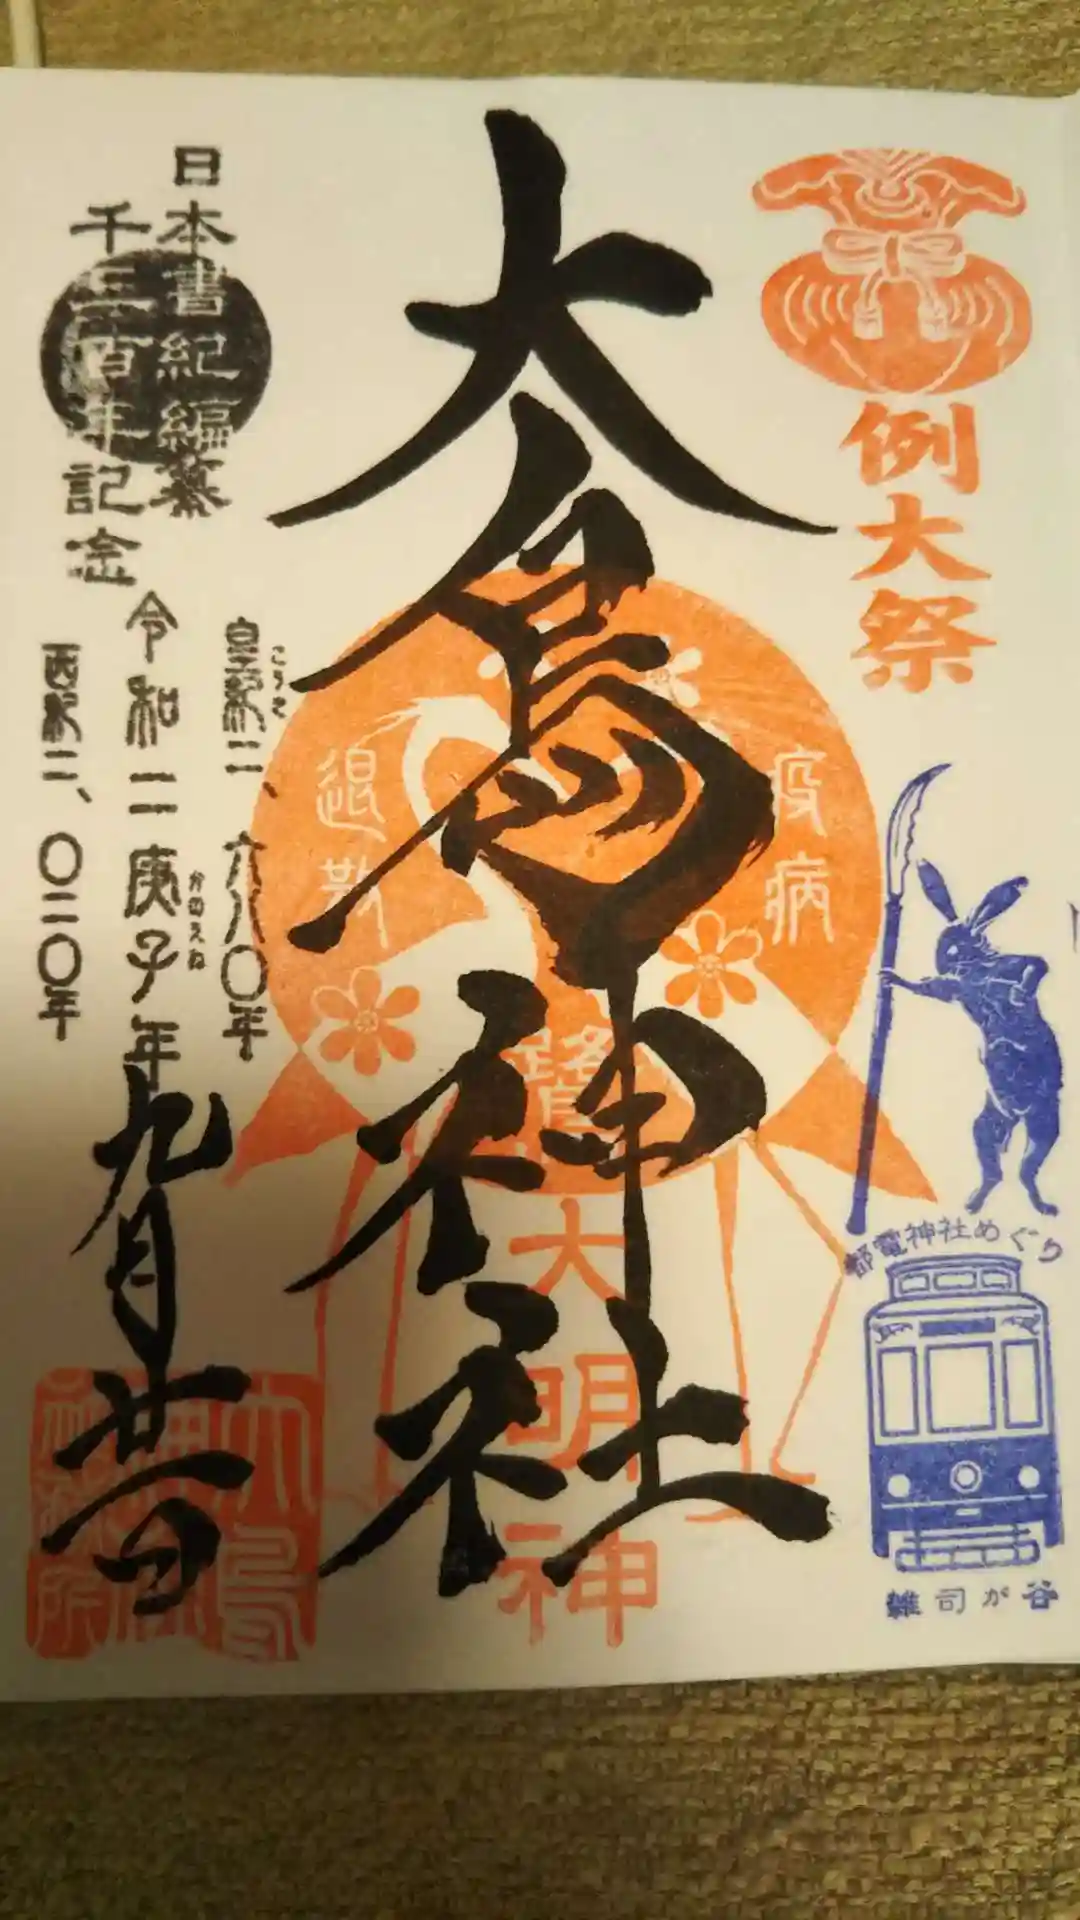 例大祭
都電神社めぐり
雑司が谷
大鳥神社
疫病
退散
鷺大明神
皇紀二、六八〇年
こうき
令和二庚子年九月廿一日
かのえね
西暦二、〇二〇年
日本書紀編纂
千三百年記念